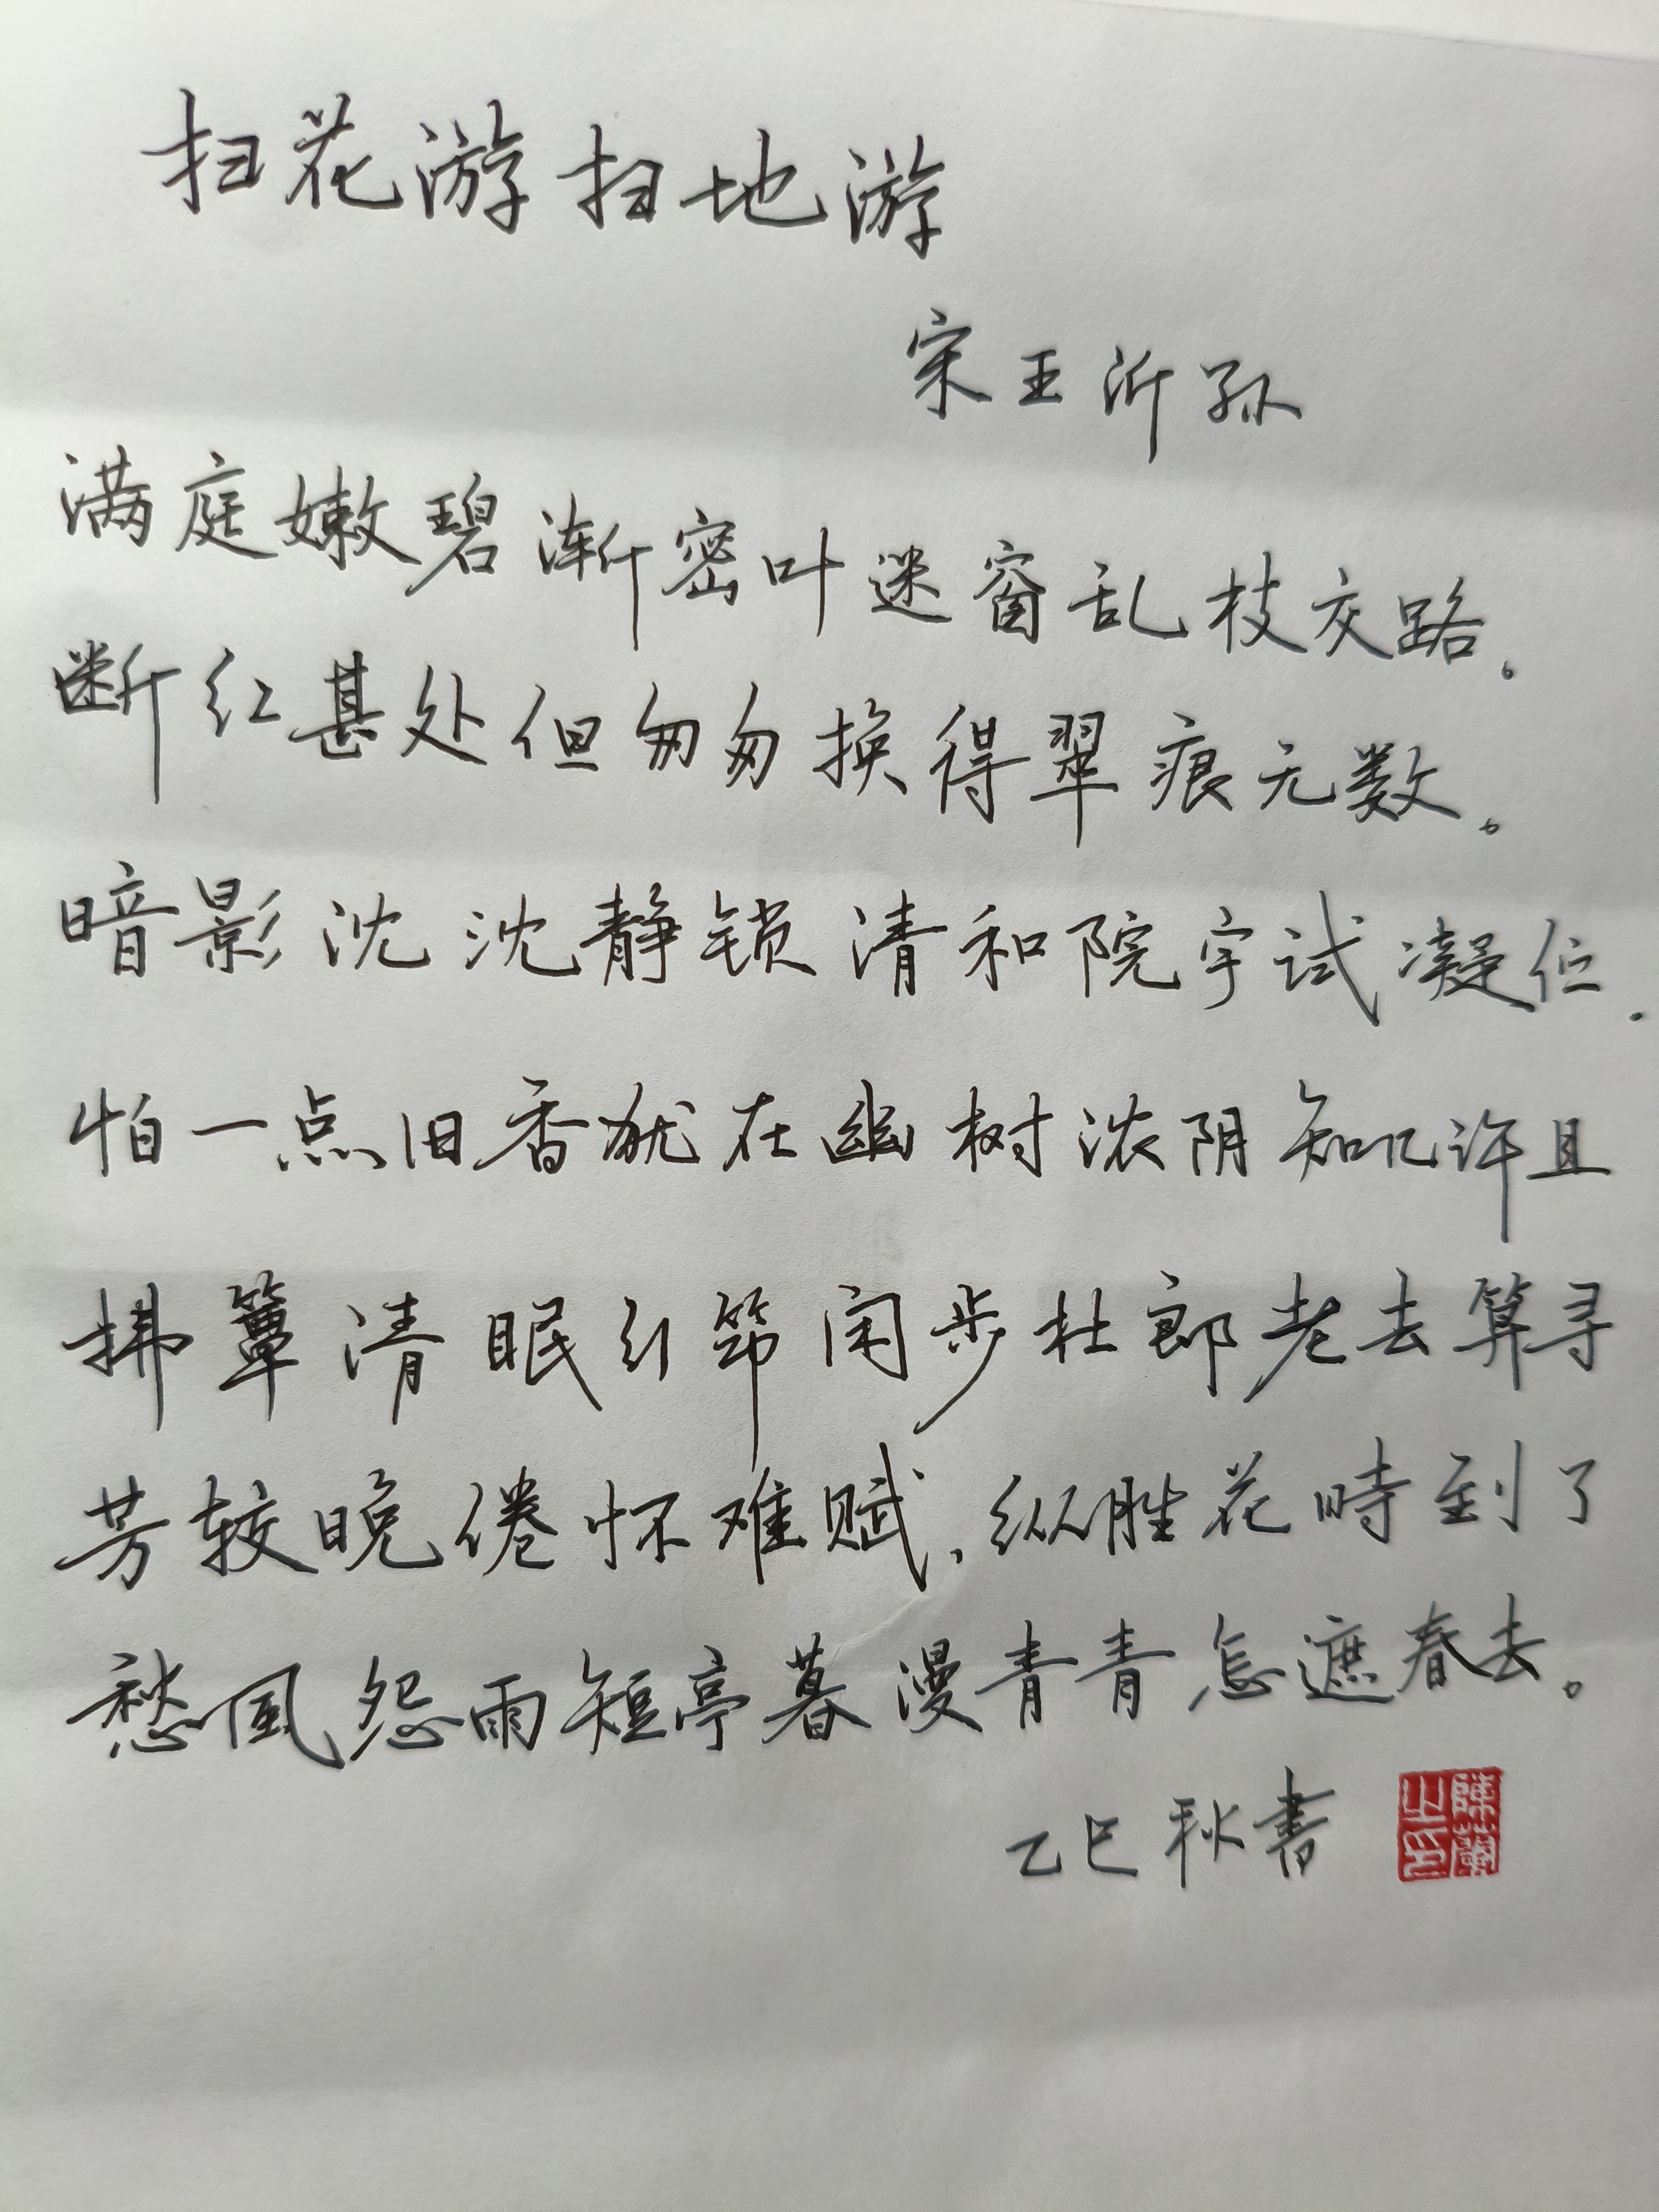 扫花游扫地游
宋王沂孙
满庭嫩碧渐密叶迷窗乱枝交路。
断红甚处但匆匆换得翠痕无数。
暗影沈沈静锁清和院宇试凝伫.
怕一点旧香犹在幽树浓阴知几许且
拂簟清眠引筇闲步杜郎老去算寻
芳较晚倦怀难赋.纵胜花時到了
愁风怨雨短亭暮漫青青怎遮春去。
乙巳秋書
之印